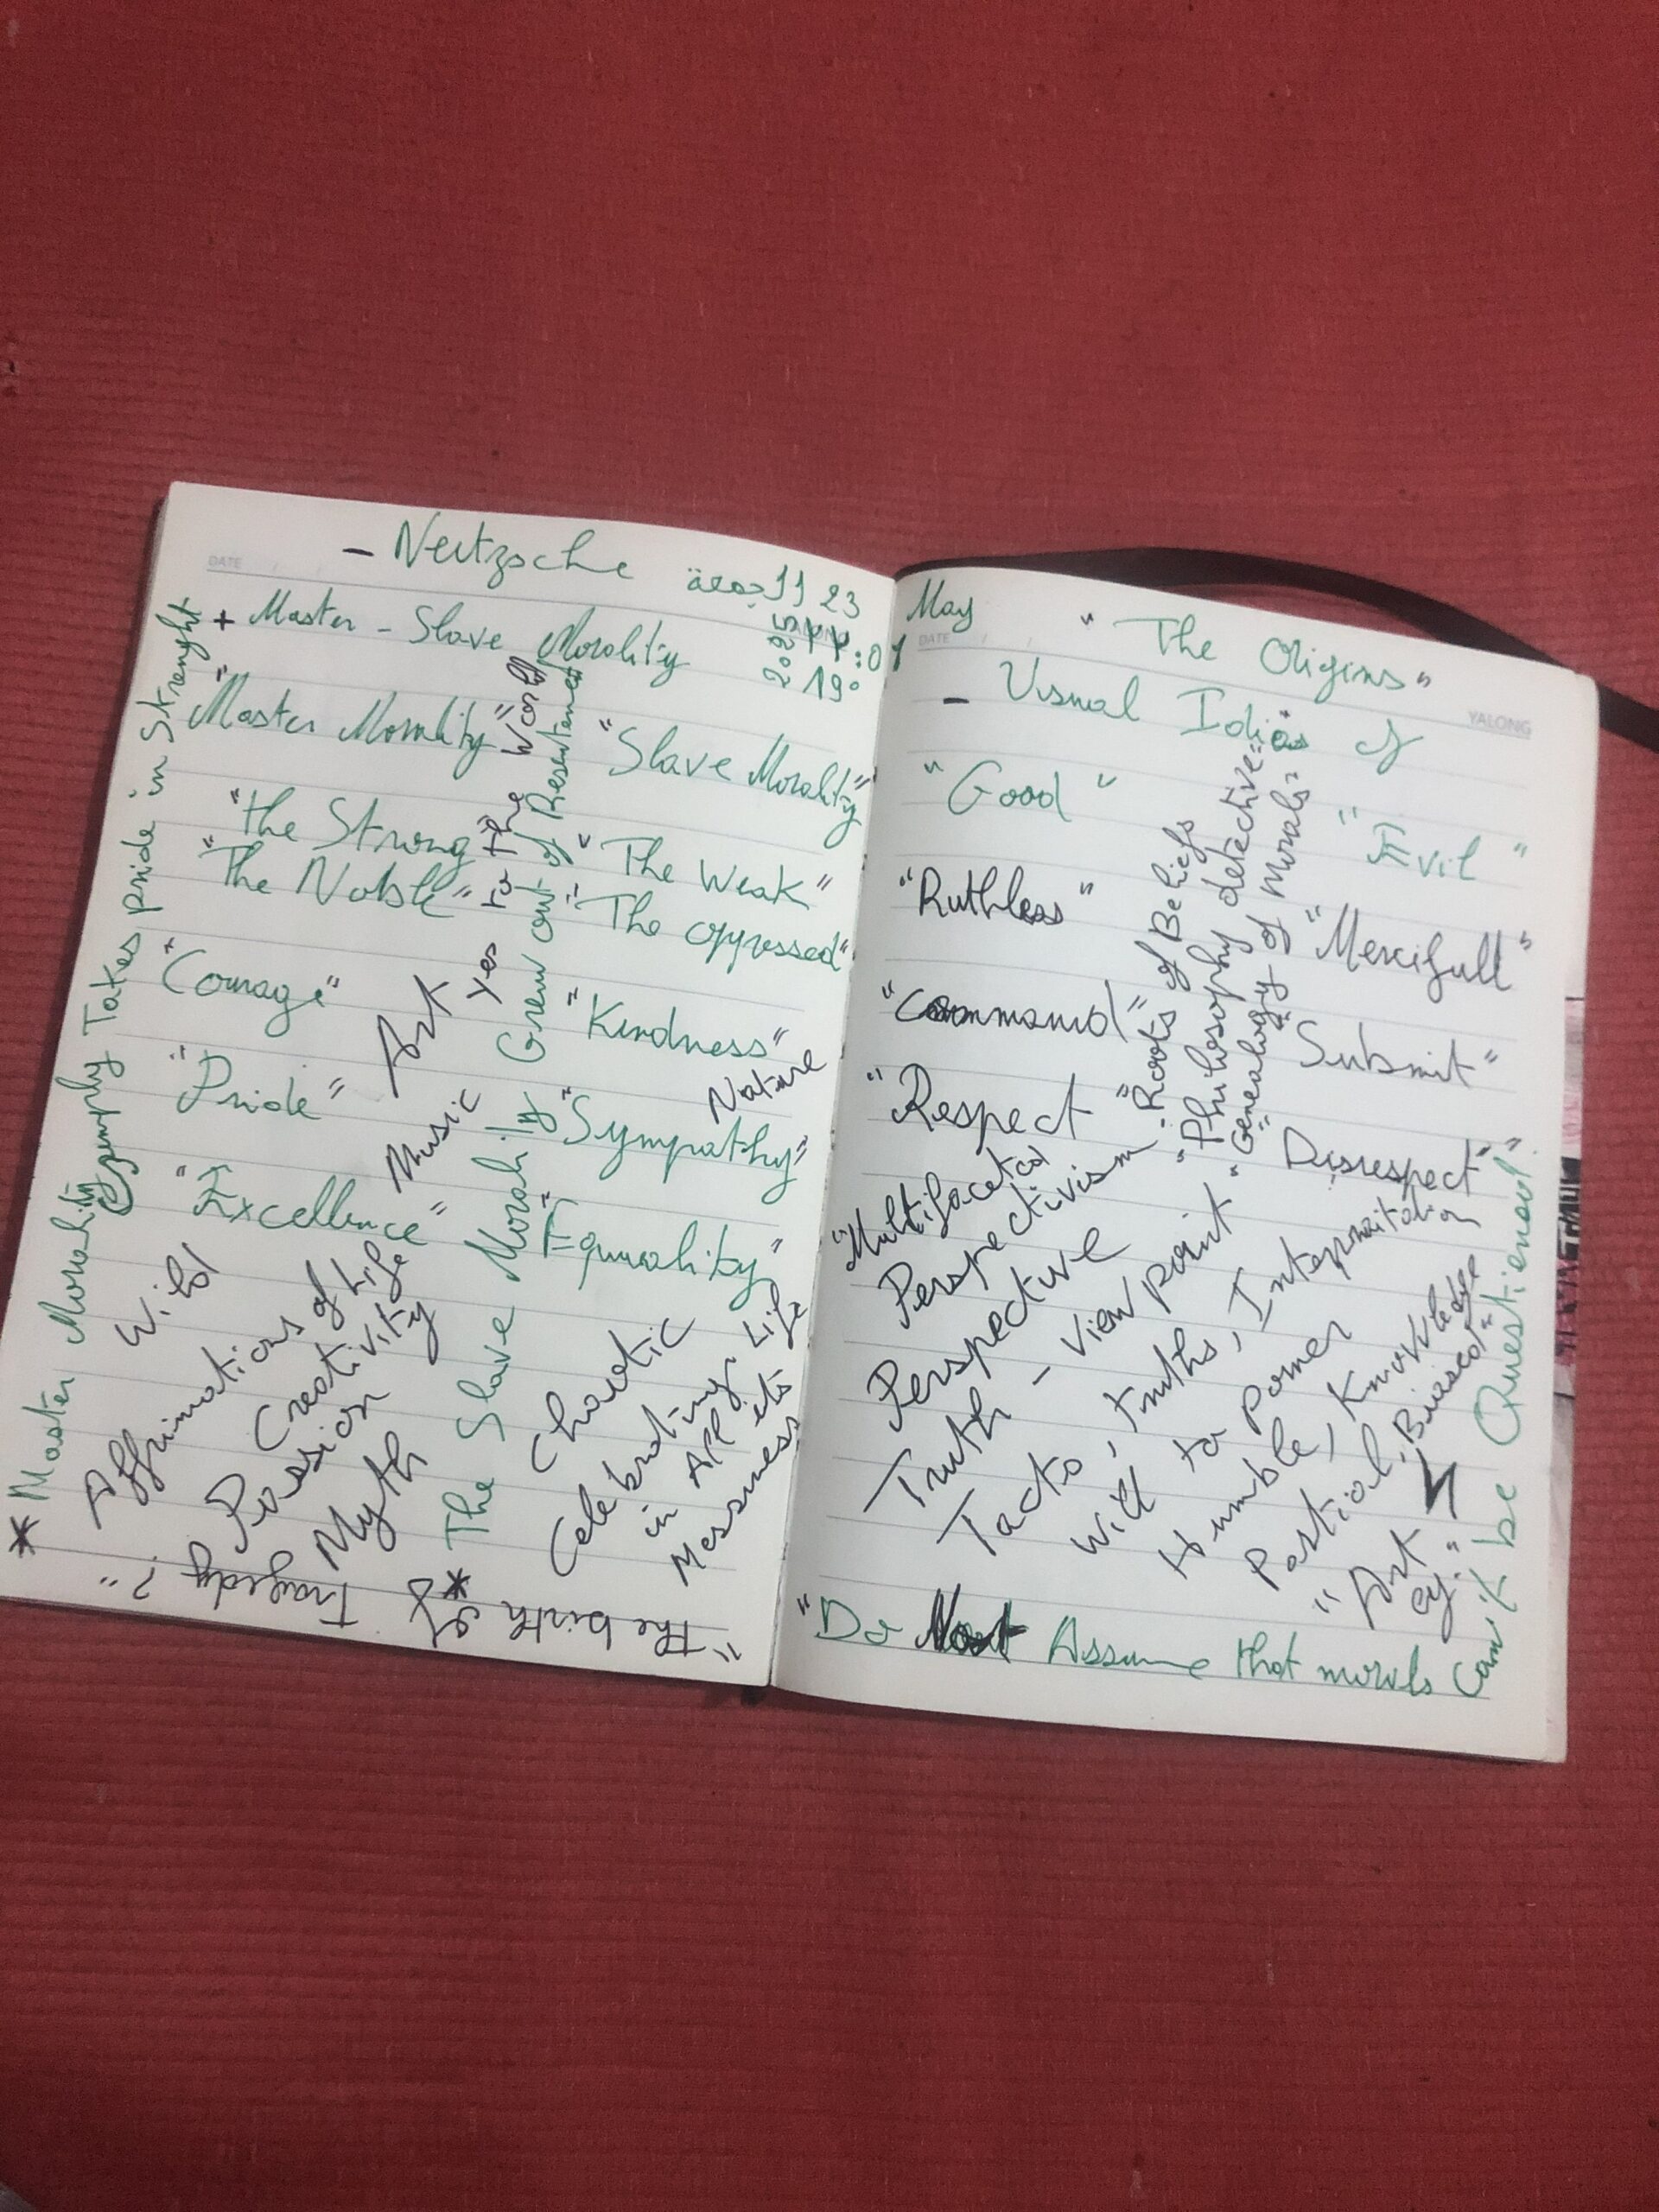 - Neitzsche
جمعة 11 23
2025
19:01
DATE
+ Master - Slave Morality
"Master Morality"
"Slave Morality"
"the Strong
"The Noble"
"The Weak"
"The oppressed"
"Courage"
"Kindness"
"Pride"
"Sympathy"
"Excellence"
"Equality"
* Master Morality Takes pride in Strenght
* The Slave Morality Grew out of
Art
yes to the World
Music
Nature
Wild
Affirmations of Life
Creativity
Passion
Myth
Chaotic
Celebrating Life
in All its
Messiness
"The birth of
Tragedy?"
May
DATE
YALONG
"The Origins"
- Visual Idias of
"Good"
"Evil"
"Ruthless"
"Mercifull"
"Command"
Submit"
"Respect
Disrespect"
"Roots of Beliefs
"Philosophy detective"
"Genealogy of Morals"
"Multifaceted
Perspectivism
Perspective
Truth - View point"
Facts, truths,
Will to Power
Humble, Knowledge
Partial, Biased"
"Art
"Do Not Assume that morals Can't be Questienod"